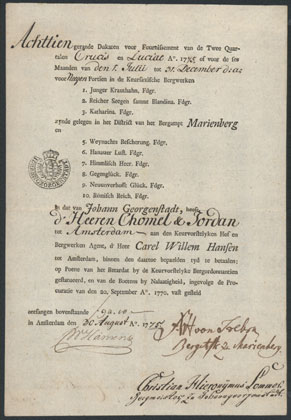 Achttien gerande Dukaten voor Fournissement van de Two Quar-
talen Crucis en Luciae Aº. 1775 of voor de ses
Maanden van den 1. Julii tot 31. December dito
voor Negen Portien in de Keurſaxiſche Bergwerken
1. Junger Kranthahn. Fdgr.
2. Reicher Seegen ſammt Blandina. Fdgr.
3. Katharina. Fdgr.
zynde gelegen in het Diſtrict van het Bergampt Marienberg
en
5. Weynachts Beſcherung. Fdgr.
6. Hanauer Luſt. Fdgr.
7. Himmliſch Heer. Fdgr.
8. Gegenglück. Fdgr.
9. Neuunverhofft Glück. Fdgr.
10. Römiſch Reich. Fdgr.
in dat van Johann Georgenſtadt, heeft
d'Heeren Chomel & Jordan
tot Amſterdam aan den Keurvorſtelyken Hof en
Bergwerken Agent, d'Heer Carel Willem Hansen
tot Amſterdam, binnen den daartoe bepaalden tyd te betaalen;
op Poene van het Retardat by de Keurvorſtelyke Bergordonnantien
geſtatueerd, en van de Boetens by Nalaatigheid, ingevolge de Pro-
curatie van den 20. September Aº. 1770. vaſt geſteld
ontfangen bovenſtaande
in Amſterdam den 30 Auguſt Aº. 1775
Bergmſtr. z. Marienberg.
Chriſtian Hieronymus Lommer